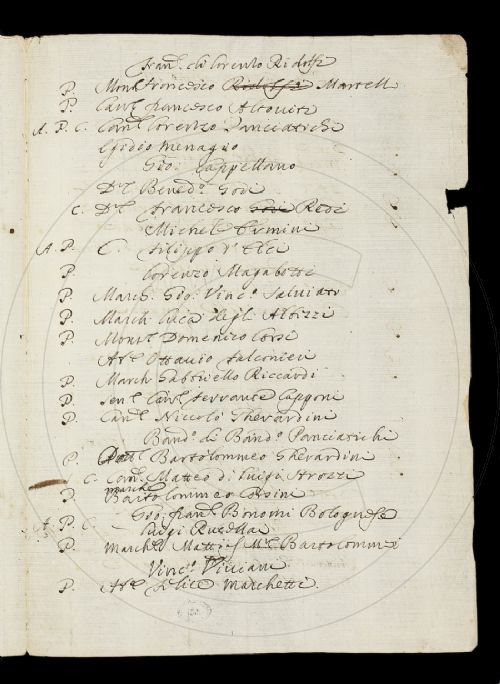 Fran.o di Lorenzo Ridolfi
P. Mons. francesco Ridolfi Martell
P. Caval. francesco Altoviti
A. P. C. Caval. Lorenzo Panciatichi
Egidio Menagio
Gio: Cappellano
D.r Bened.o Gori
C. D.r francesco Redi
Michel Ermini
A. P. C. filippo d'Elci
P. Lorenzo Magalotti
P. March. Gio: Vinc.o Salviati
P. March Luca degl. Albizzi
P. Mons.r Domenico Corsi
Ottavio falconieri
P. March Gabbriello Riccardi
P. Sen. Caval. ferrante Capponi
P. Can. Niccolò Gherardini
Band.o di Band.o Panciatichi
P. Bartolommeo Gherardini
C. Can. Matteo di Luigi Strozzi
P. march Bartolommeo Corsini
A. P. C. Gio: fran.o Bonomi Bolognese
Luigi Rucellai
P. March Mattias Bartolommei
Vinc.o Viviani
P. felice Marchetti.